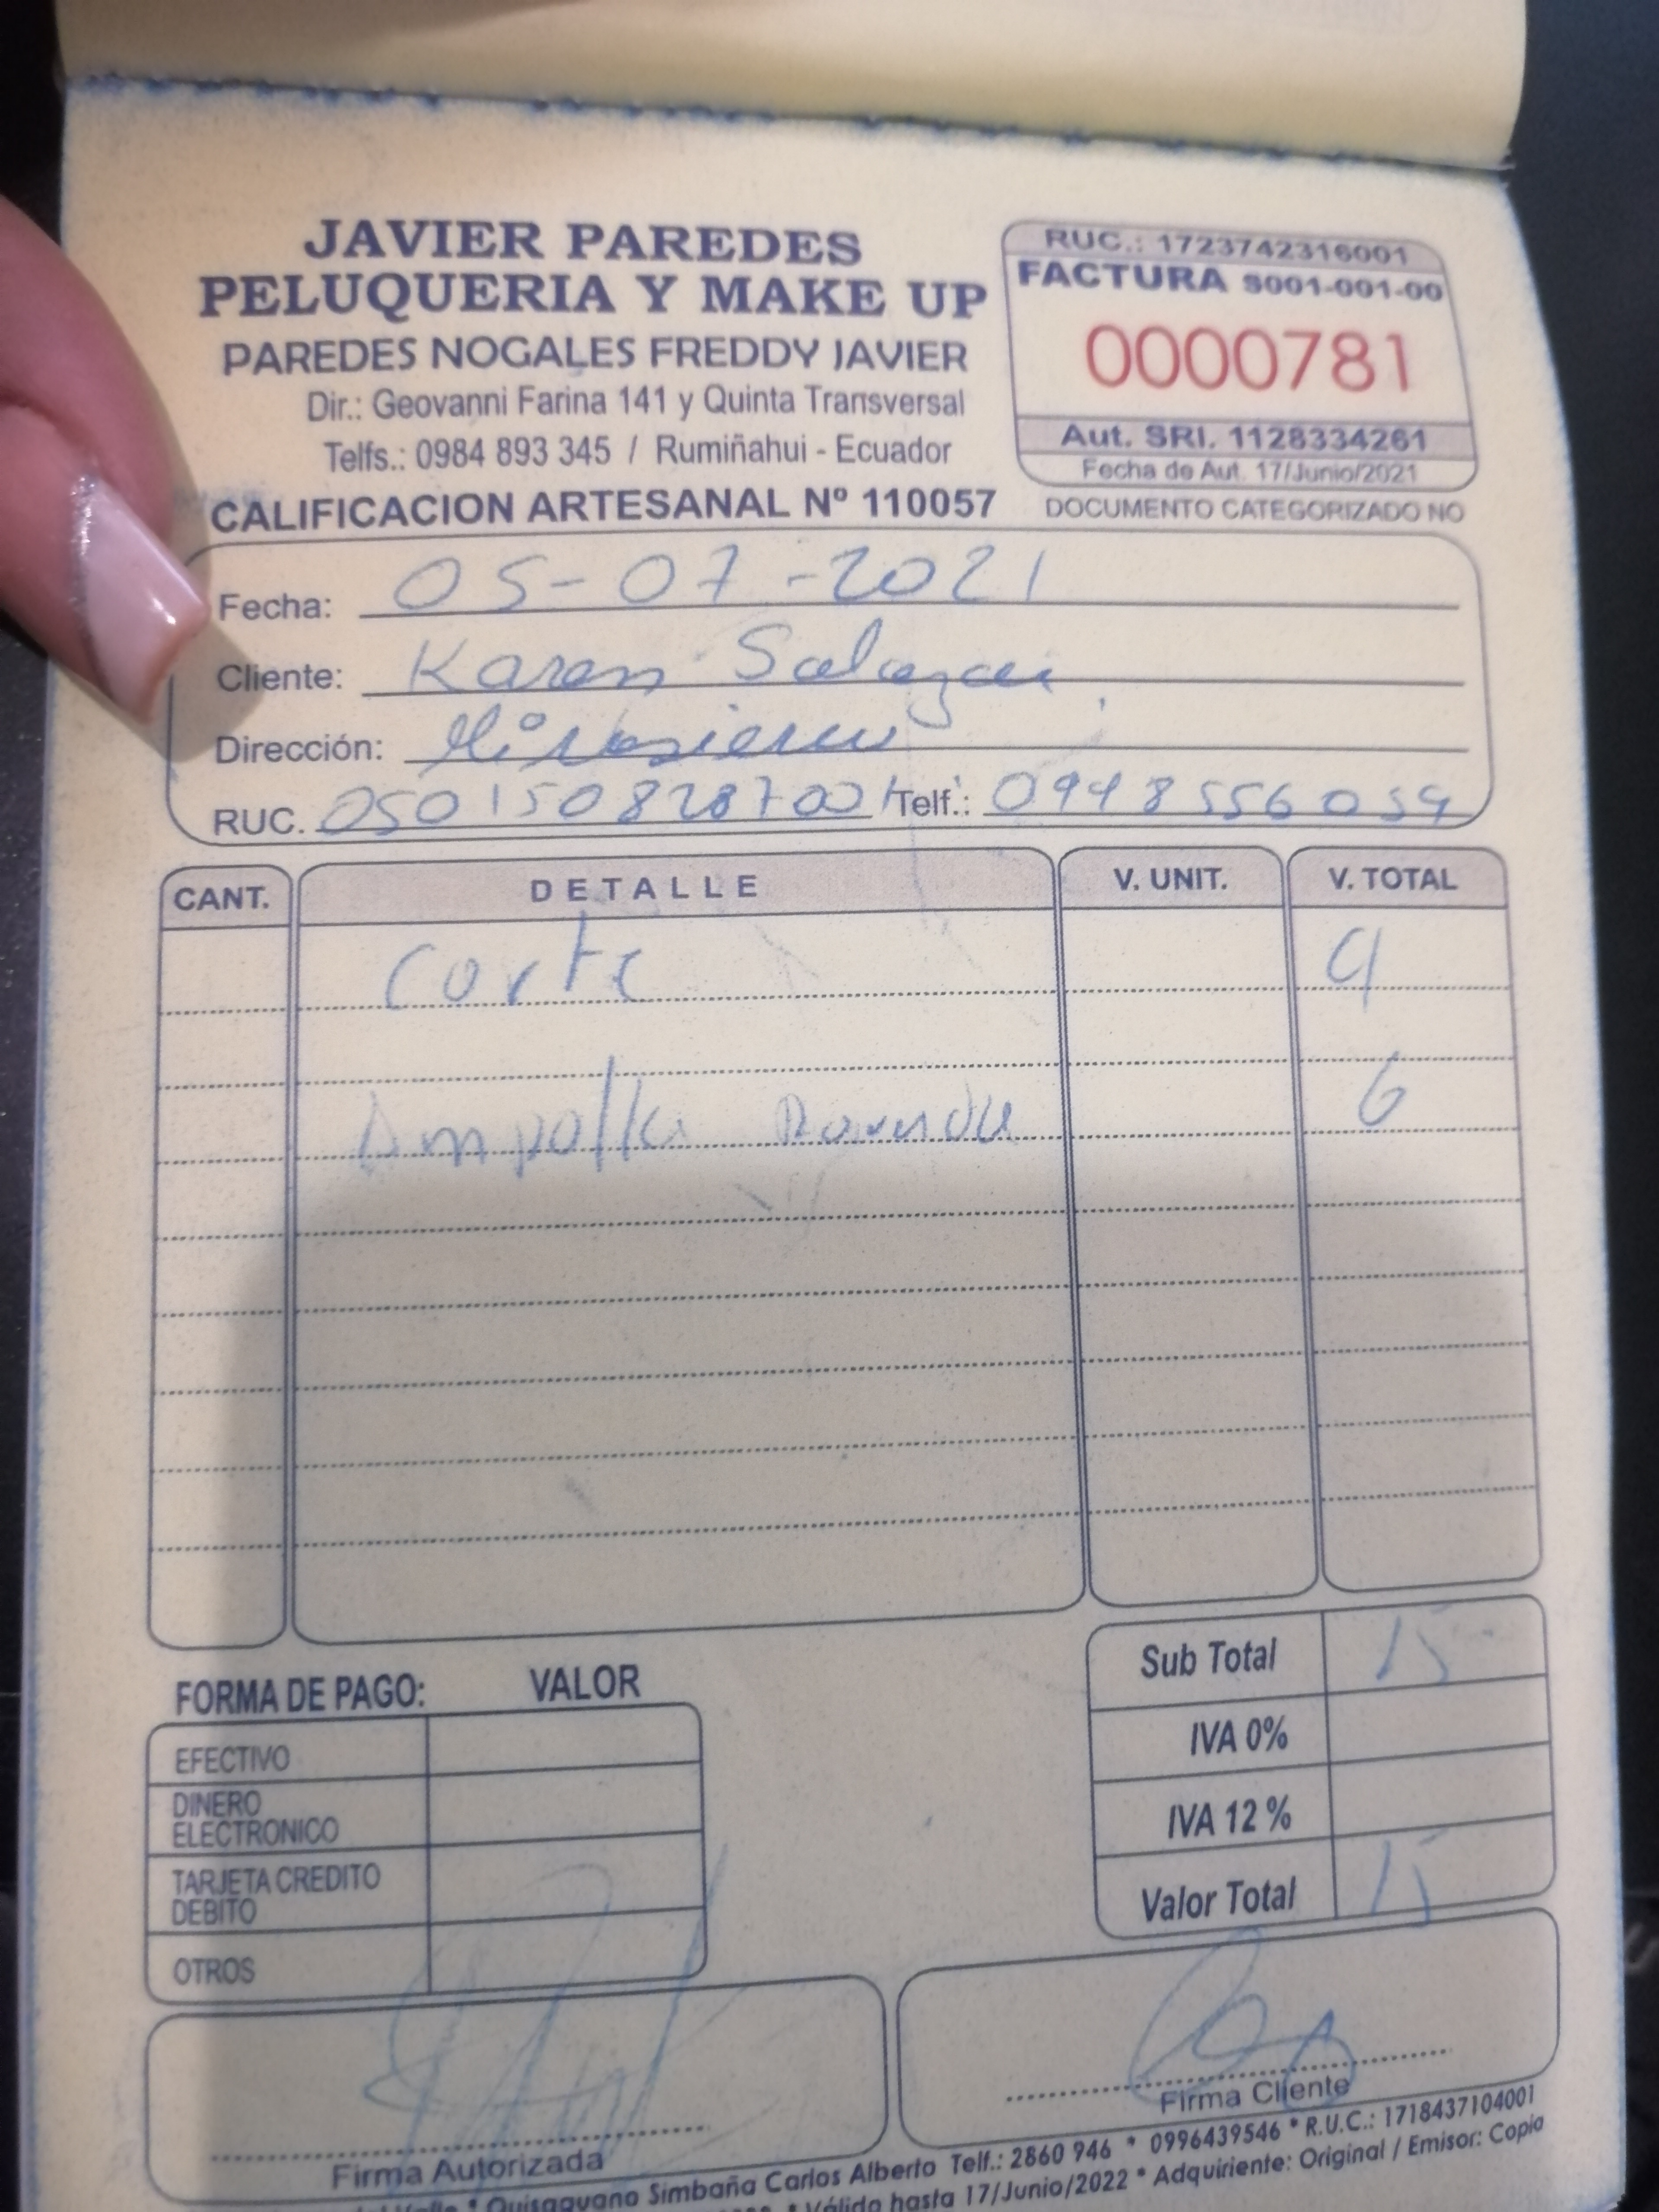 JAVIER PAREDES
PELUQUERIA Y MAKE UP
PAREDES NOGALES FREDDY JAVIER
Dir.: Geovanni Farina 141 y Quinta Transversal
Telfs.: 0984 893 345 / Rumiñahui - Ecuador
CALIFICACION ARTESANAL Nº 110057
RUC.: 1723742316001
FACTURA S001-001-00
0000781
Aut. SRI. 1128334261
Fecha de Aut. 17/Junio/2021
DOCUMENTO CATEGORIZADO NO
Fecha: 05-07-2021
Cliente: Karen Salazar
Dirección:
RUC. 0501508287001 Telf.:
CANT. DETALLE V. UNIT. V. TOTAL
Corte 9
Ampolla 6
Sub Total 15
IVA 0%
IVA 12 %
Valor Total 15
FORMA DE PAGO: VALOR
EFECTIVO
DINERO
ELECTRONICO
TARJETA CREDITO
DEBITO
OTROS
Firma Autorizada
Firma Cliente
Simbaña Carlos Alberto Telf.: 2860 946 * 0996439546 * R.U.C.: 1718437104001
* Válido hasta 17/Junio/2022 * Adquiriente: Original / Emisor: Copia